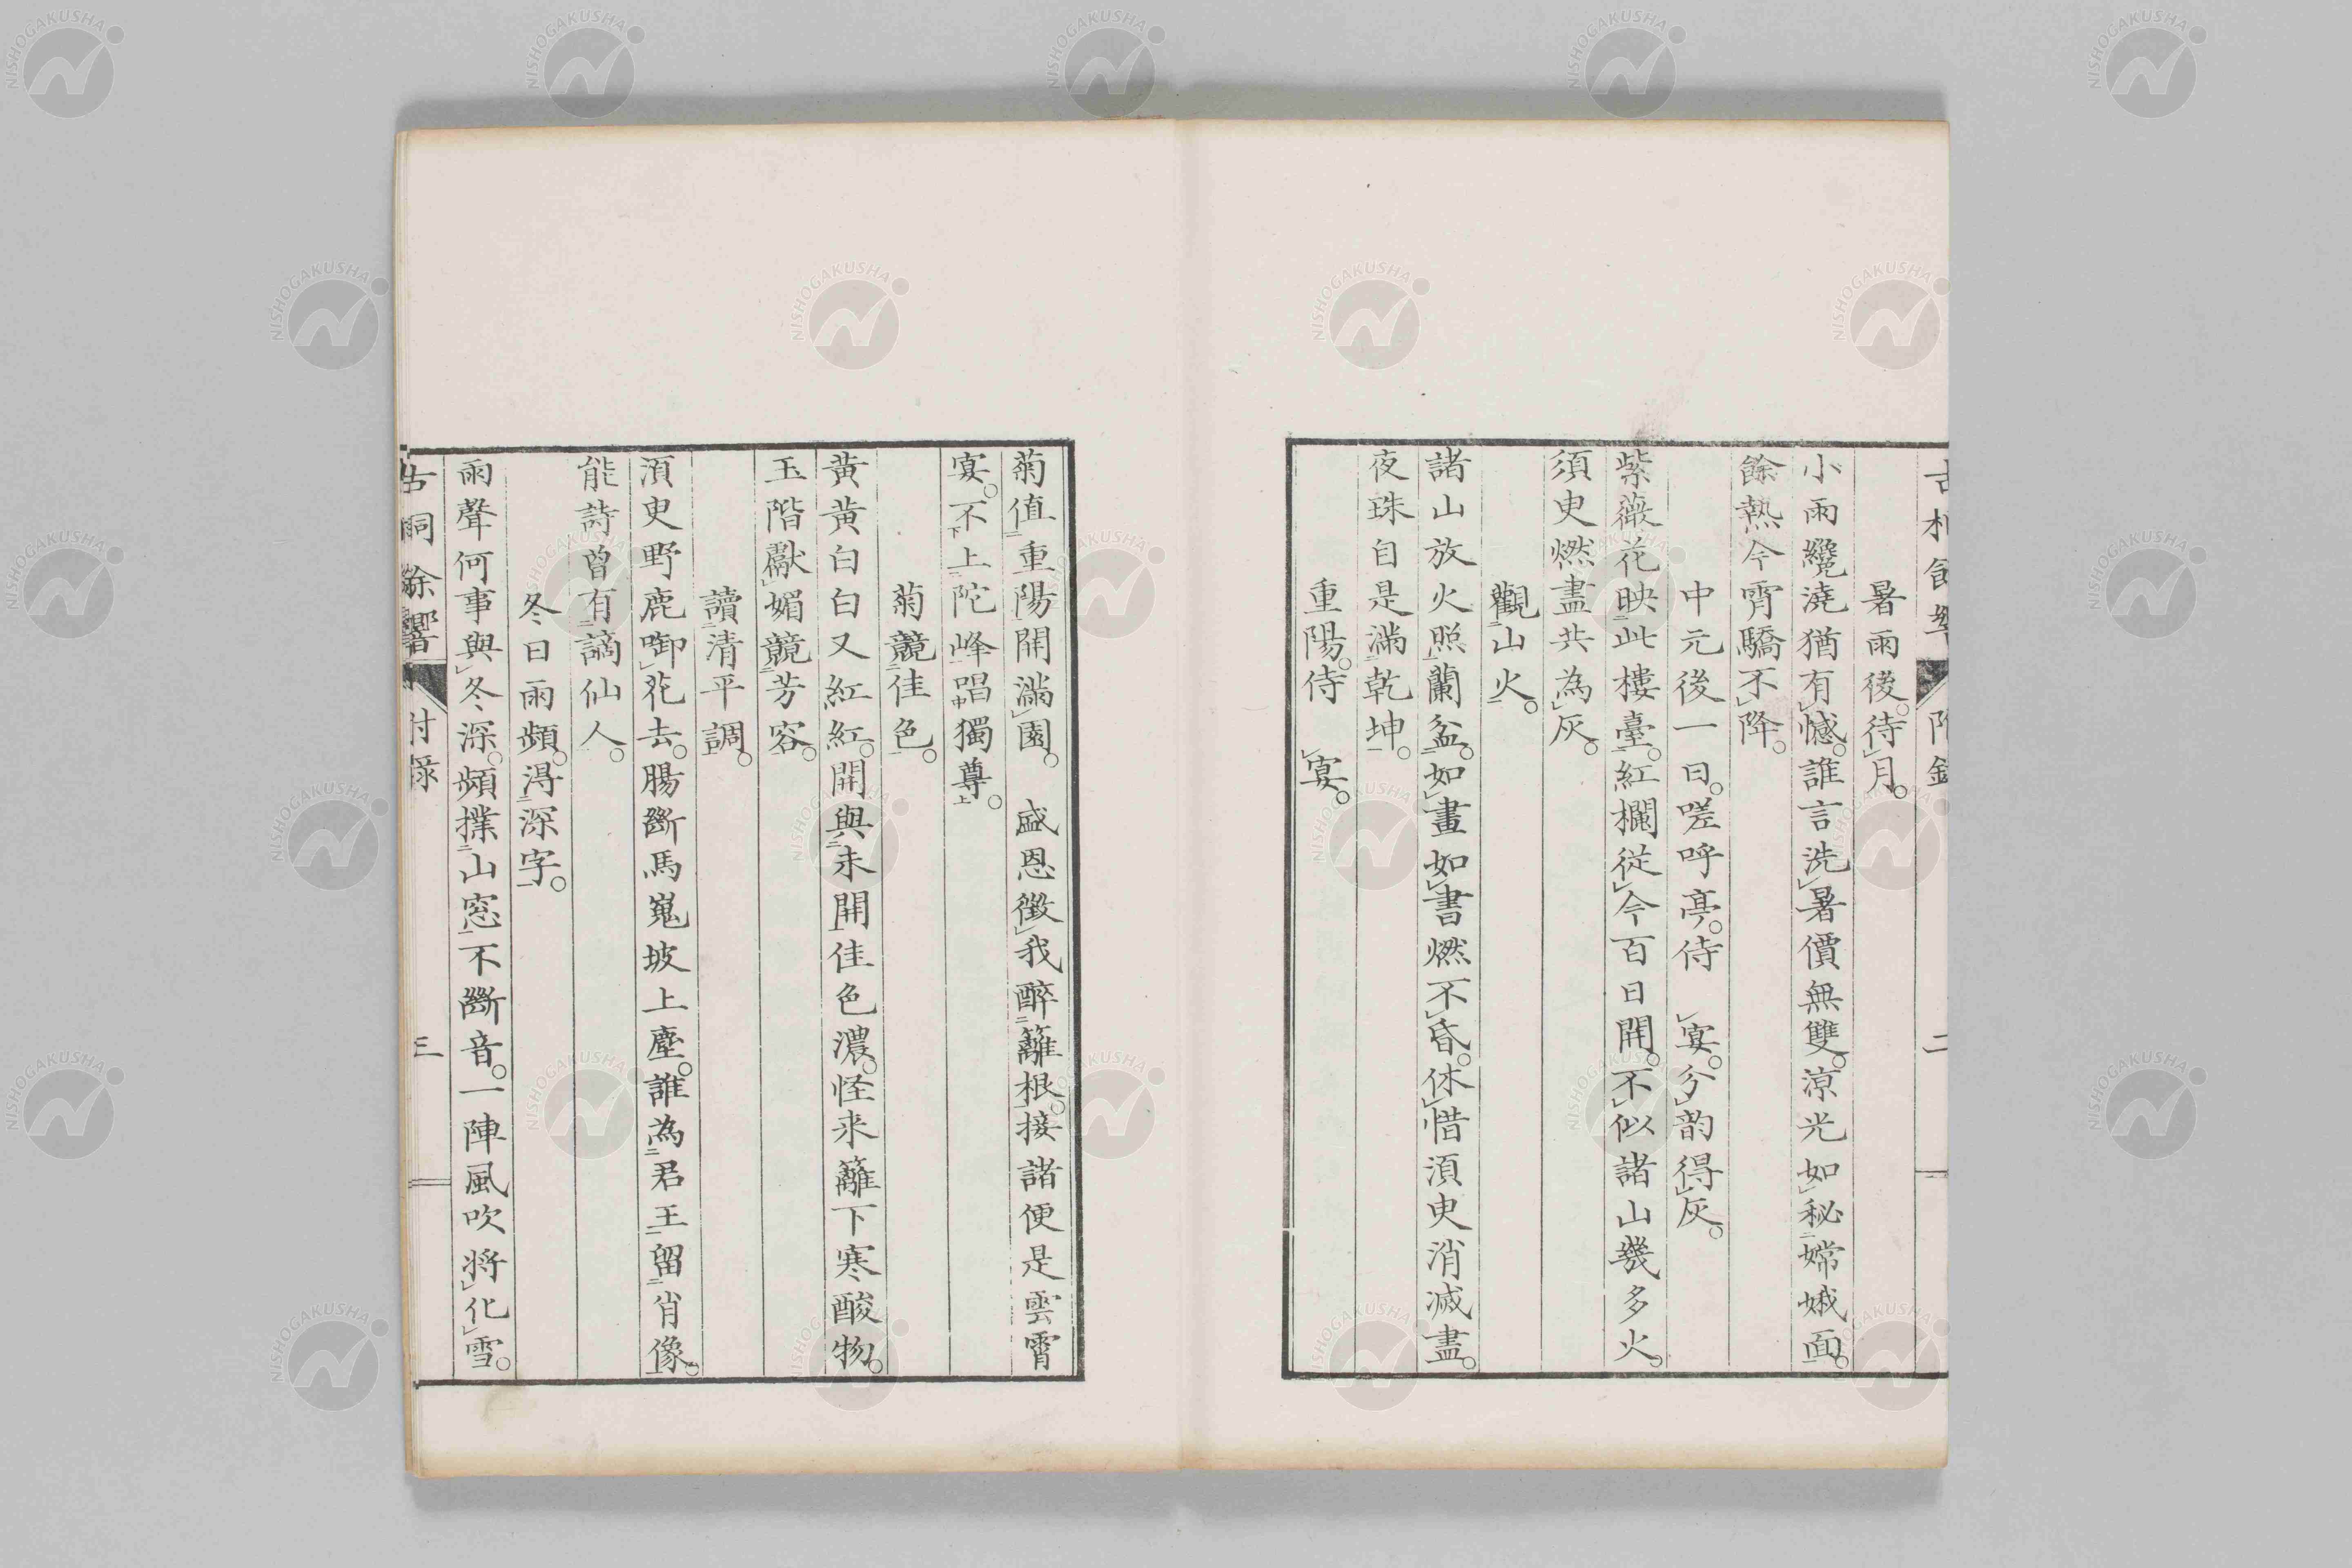 暑雨後。待月。
小雨纔澆猶有憾。誰言洗暑價無雙。涼光如秘嫦娥面。
餘熱今宵驕不降。
中元後一日。嗟呼亭。侍　宴。分韵得灰。
紫薇花映此樓臺。紅欄從今百日開。不似諸山幾多火。
須臾燃盡共為灰。
觀山火。
諸山放火照蘭盆。如畫如書燃不昏。休惜須臾消滅盡。
夜珠自是滿乾坤。
重陽。侍　宴。
二
菊值重陽開滿園。　盛恩徵我醉籬根。接諸便是雲霄
宴。不上陀峰唱獨尊。
菊競佳色。
黃黃白白又紅紅。開與未開佳色濃。怪来籬下寒酸物。
玉階獻媚競芳容。
讀清平調。
須臾野鹿啣花去。腸斷馬嵬坡上塵。誰為君王留肖像。
能詩曽有謫仙人。
冬日雨頻。得深字。
雨聲何事與冬深。頻撲山窓不斷音。一陣風吹将化雪。
餘響 付錄 三
NISHOGAKUSHA